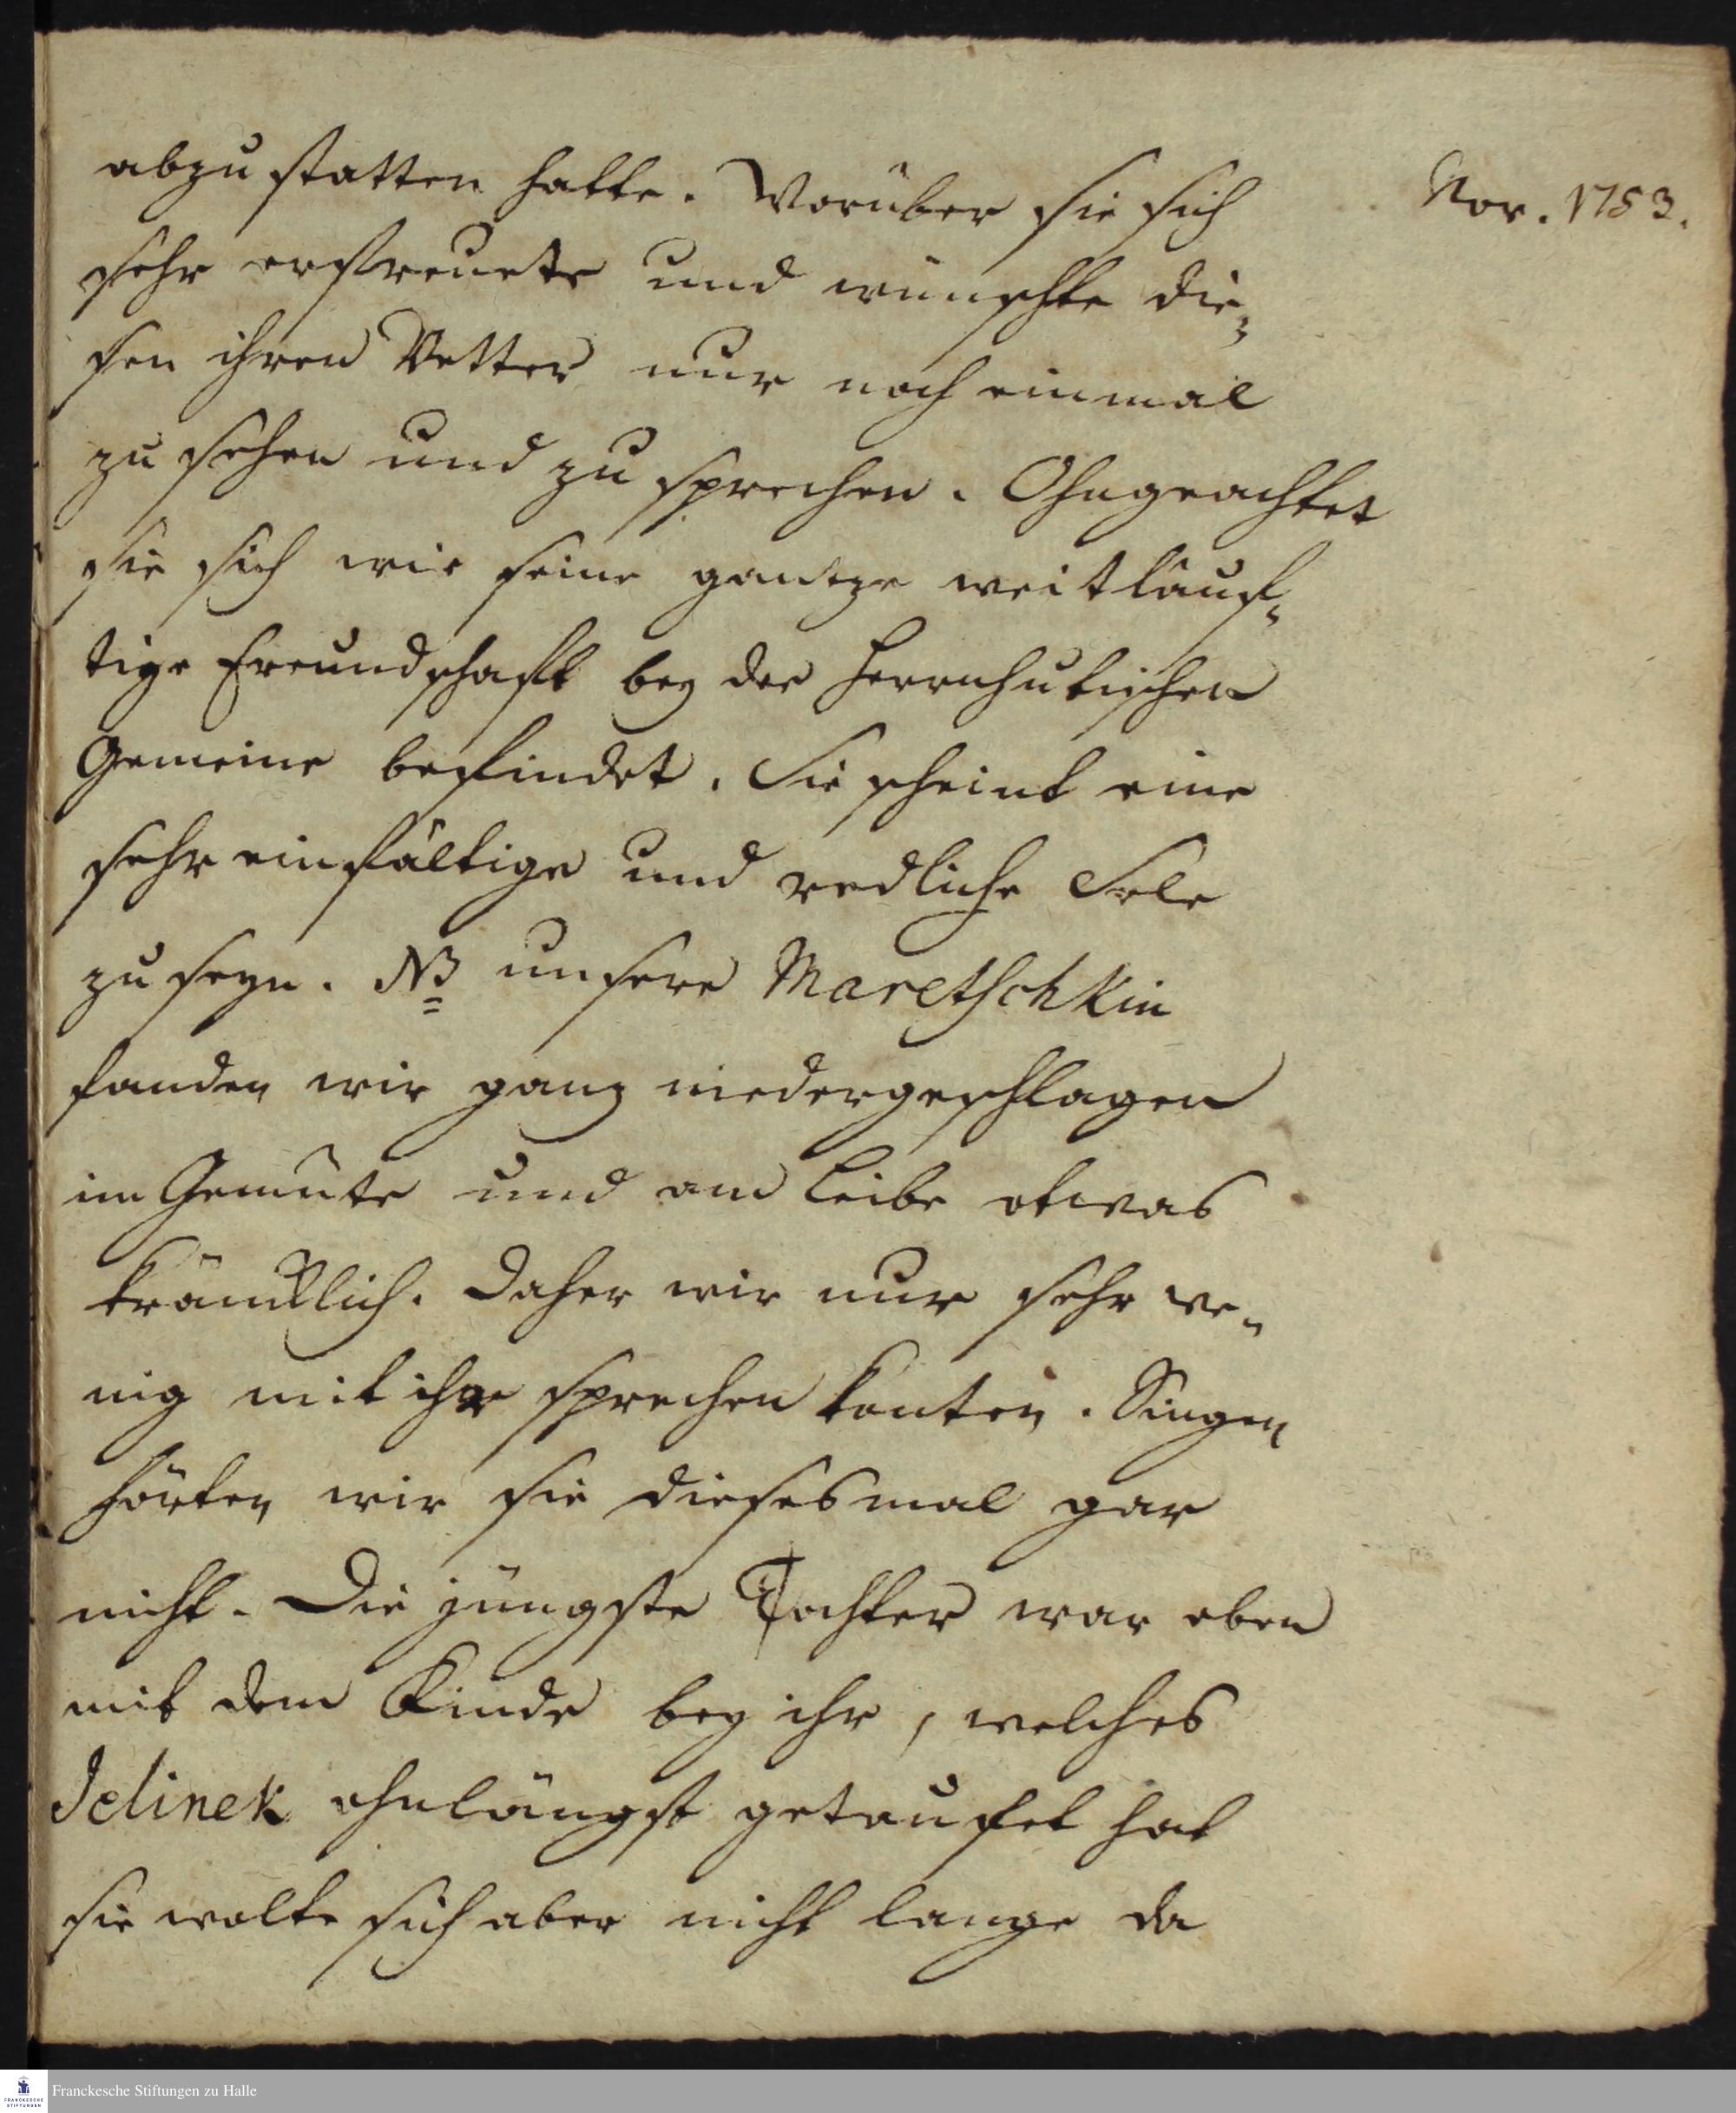 Nov. 1753.
abzustatten hatte. Worüber sie sich
sehr erfreuete und wünschte die-
sen ihren Vetter nur noch einmal
zu sehen und zu sprechen. Ohngeachtet
sie sich wie seine gantze weitläuf-
tige Freundschaft bey der Herrnhutischen
Gemeine befindet. Sie scheint eine
sehr einfältige und redliche Sele
zu seyn. NB unsere Maretschkin
fanden wir ganz niedergeschlagen
im Gemüte und am Leibe etwas
kräncklich. Daher wir nur sehr we-
nig mit ihr sprechen konten. Singen
hörten wir sie dieses mal gar
nicht. Die jüngste Tochter war eben
mit dem Kinde bey ihr, welches
Jelinek ohnlängst getaufet hat
sie wolte sich aber nicht lange da
Franckesche Stiftungen zu Halle
FRANCKESCHE
STIFTUNGEN